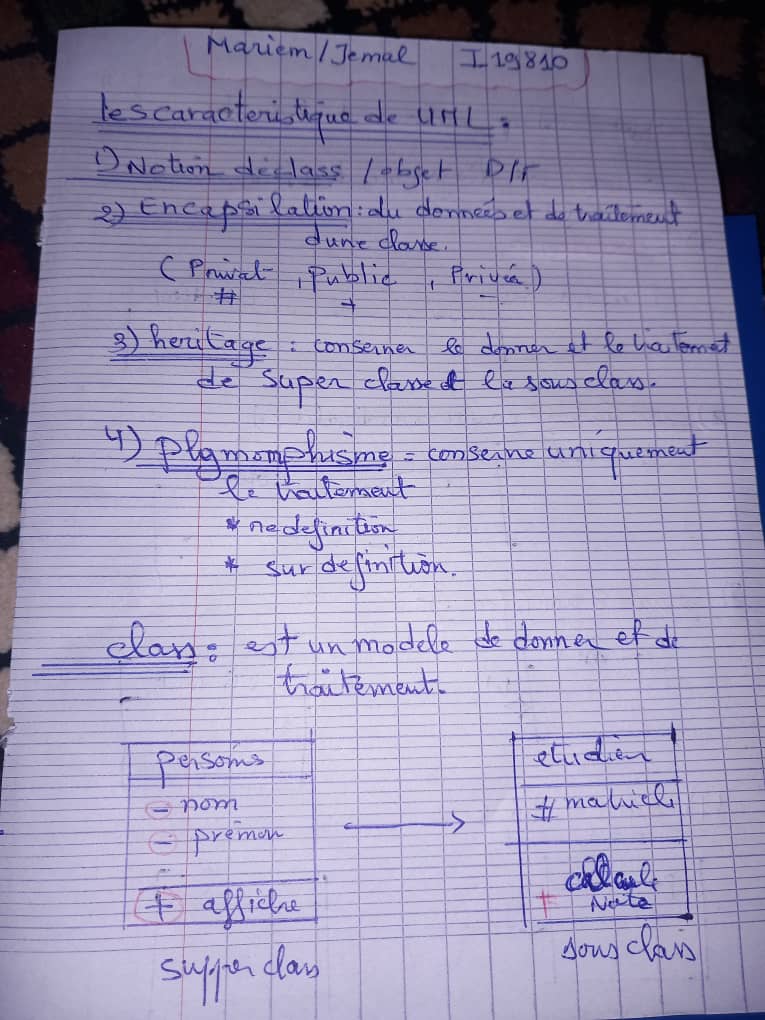 Mariem/Jemal I19810
les caracteristique de UML :
1) Notion de class / objet D/F
2) Encapsilation : du donneés et de traitement
d'une classe.
( Privat , Public , Privée )
# + -
3) heritage : conserner le donner et le traitemet
de super classe et la sous class.
4) Plymomphisme = conserne uniquement
le traitement
* redefinition
* sur definition.
class : est un modele de donner et de
traitement.
-
persoms
- nom
- prémon
+ affiche
supper class
etudien
# matricl
+ calcule
Note
sous class